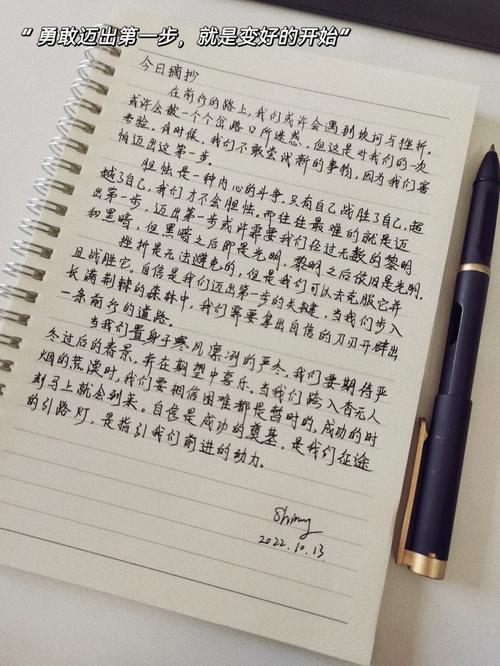 “勇敢迈出第一步，就是变好的开始”
今日摘抄
在前行的路上,我们或许会遇到坎坷与挫折,
或许会被一个个岔路口所迷惑,但这是对我们的一次
考验。有时候,我们不敢尝试新的事物,因为我们害
怕迈出这第一步。
胆怯是一种内心的斗争,只有自己战胜了自己,超
越了自己,我们才不会胆怯。而往往最难的就是迈
出第一步,迈出第一步或许需要我们经过无数的黎明
和黑暗,但黑暗之后即是光明,黎明之后依旧是光明。
挫折是无法避免的,但是我们可以去克服它并
且战胜它。自信是我们迈出第一步的关键,当我们步入
长满荆棘的森林中,我们需要拿出自信的刀刃开辟出
一条前行的道路。
当我们置身于寒风凛冽的严冬,我们要期待严
冬过后的春景,并在期望中喜乐。当我们跨入杳无人
烟的荒漠时,我们要相信困难都是暂时的,成功的时
刻马上就会到来。自信是成功的奠基,是我们征途
的引路灯,是指引我们前进的动力。
2022.10.13